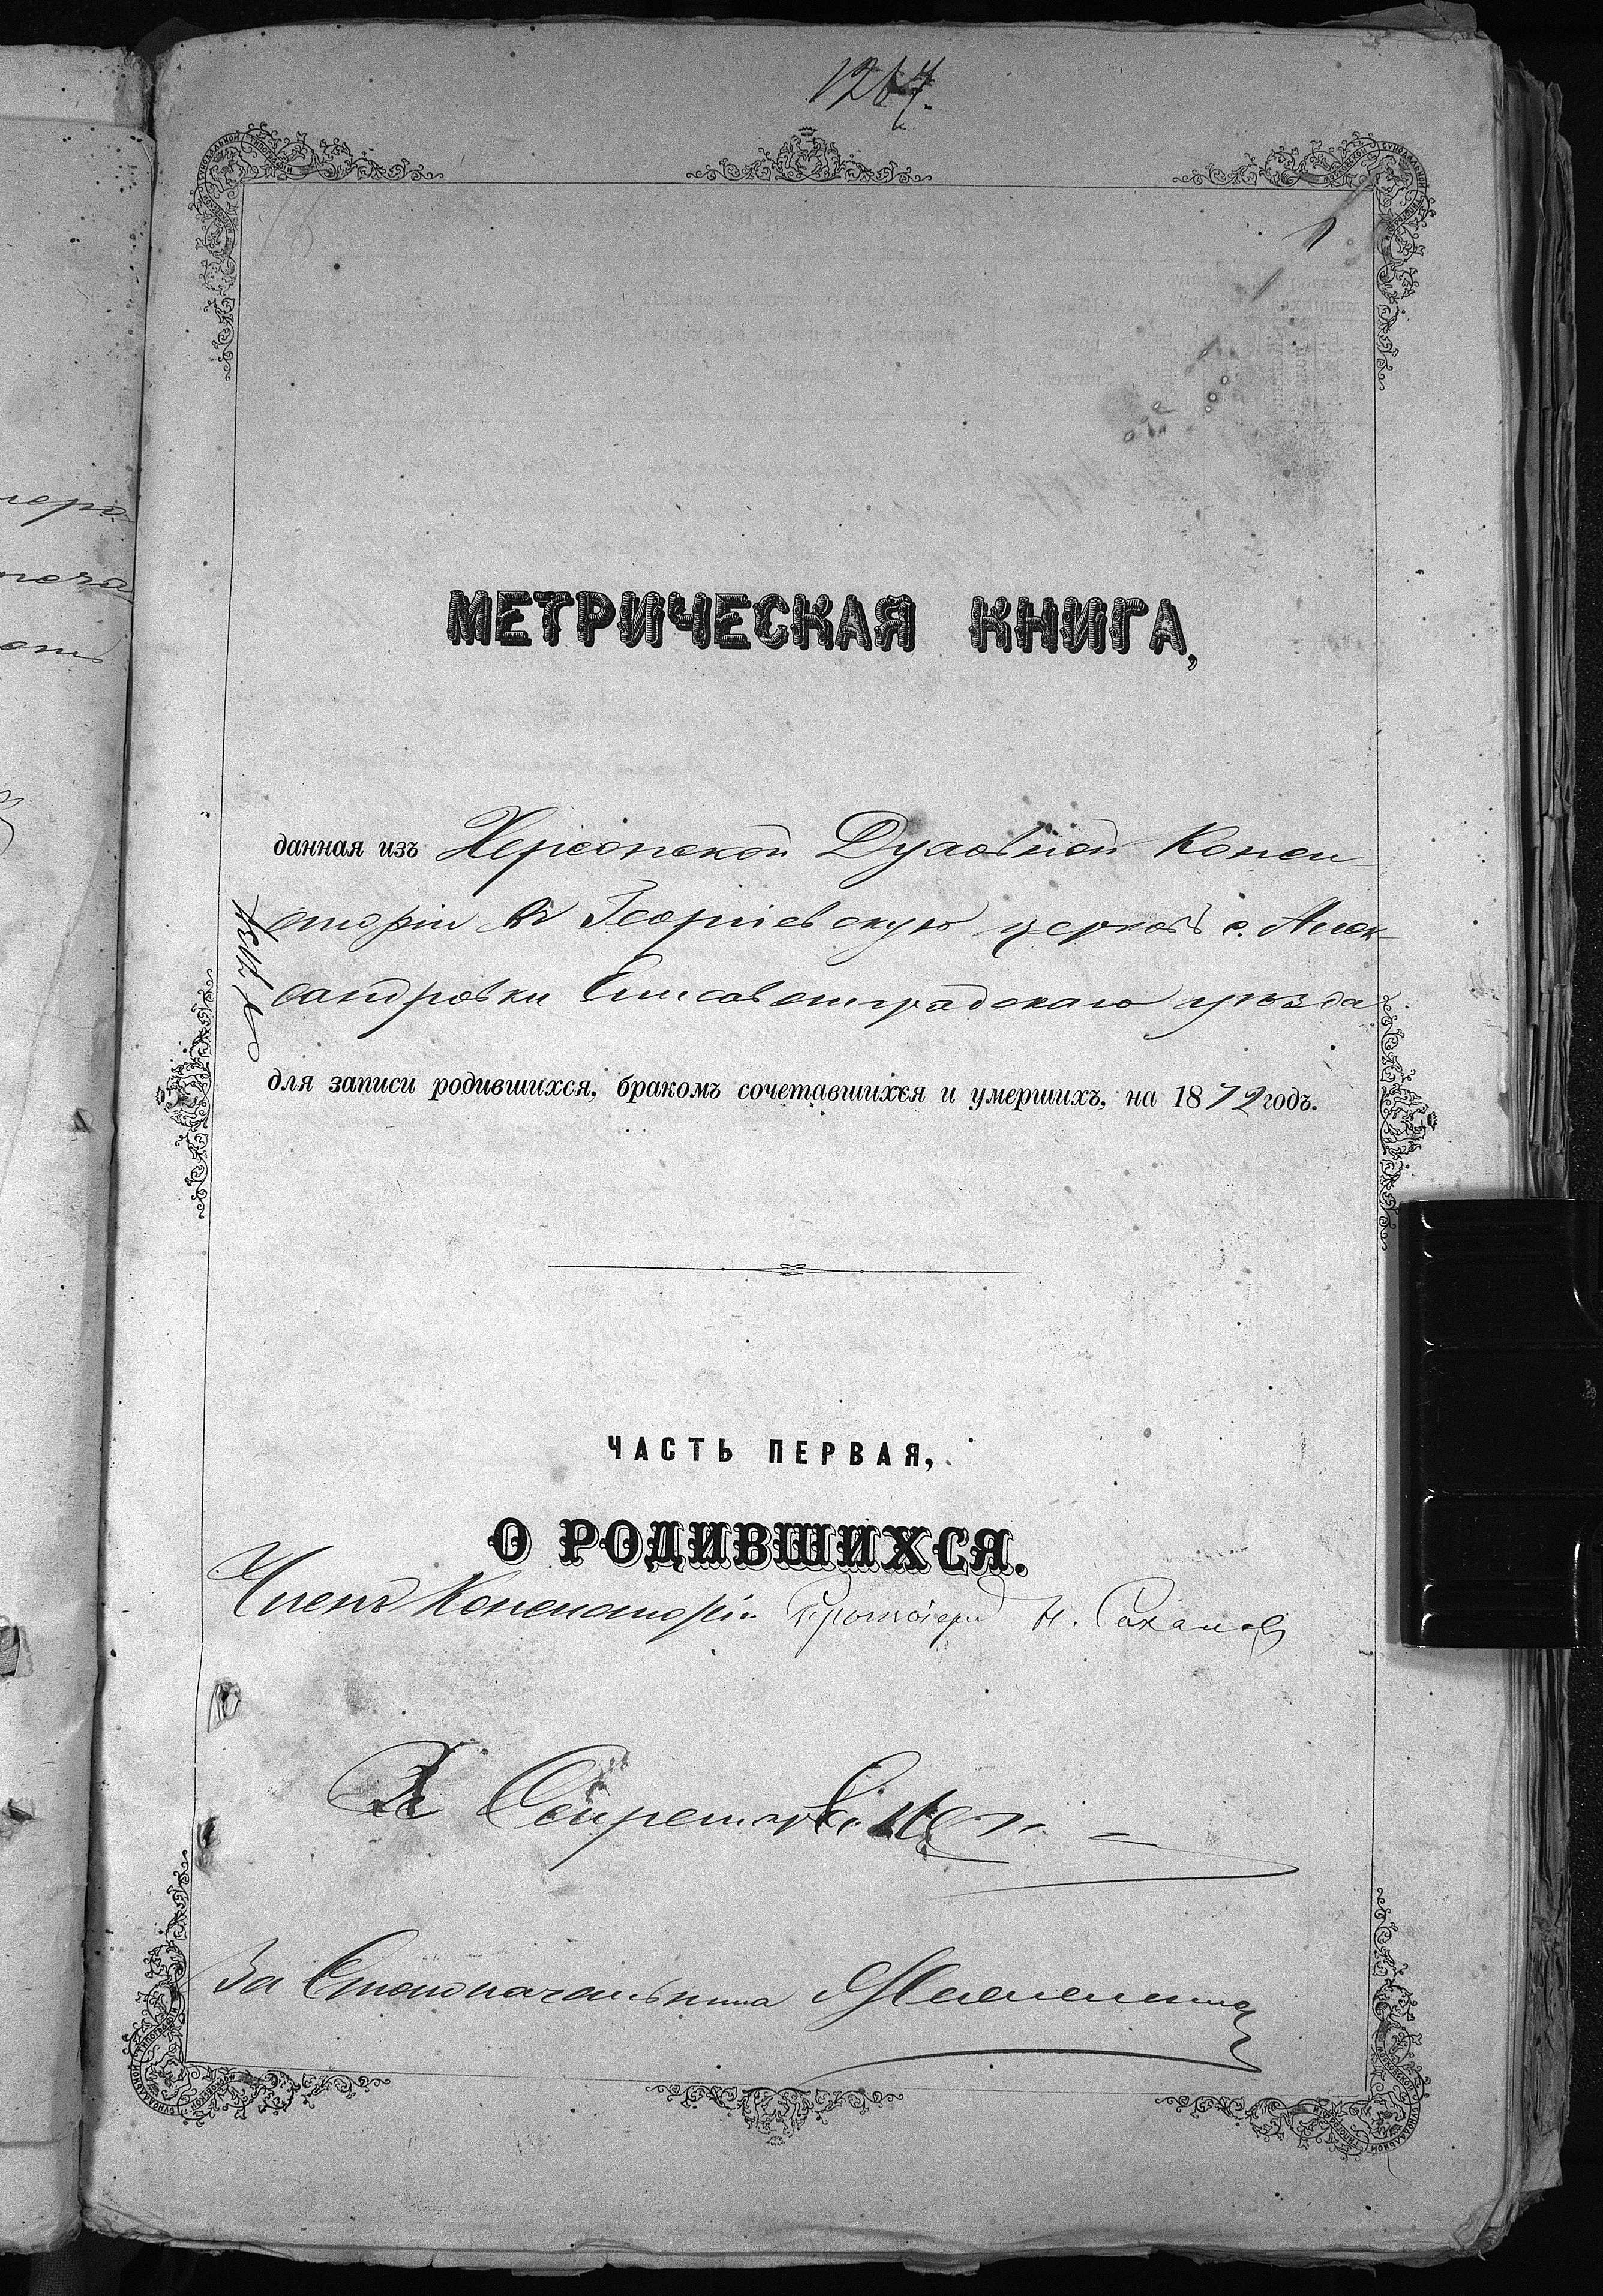 1
МЕТРИЧЕСКАЯ КНИГА,
данная изъ Херсонской Духовной Конси
сторіи въ Георгіевскую церковь с. Алек-
сандровки Елисаветградскаго уѣзда
для записи родившихся, бракомъ сочетавшихся и умершихъ, на 1872 годъ.
ЧАСТЬ ПЕРВАЯ,
О РОДИВШИХСЯ.
Членъ Консисторіи Протоіерей Н.
За Секретаря
За Столоначальника